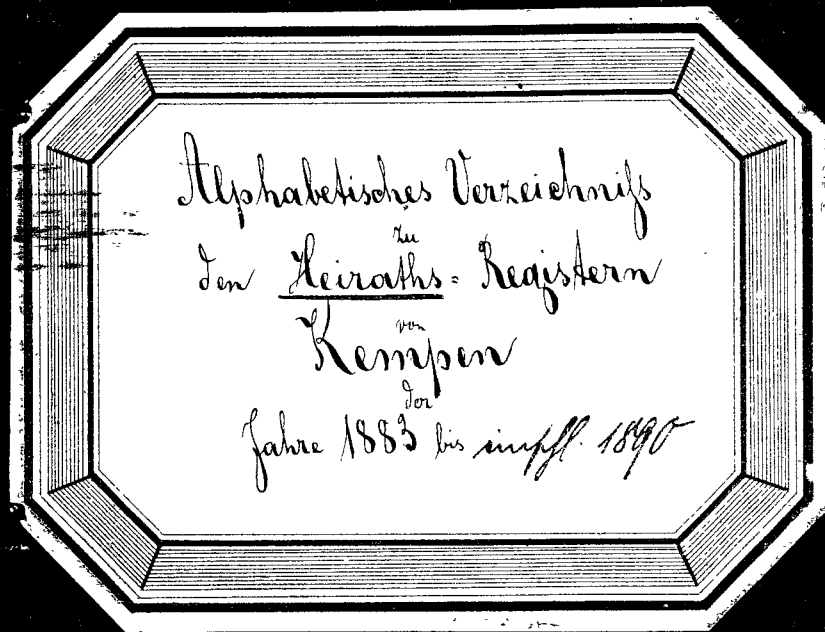 Alphabetisches Verzeichniß
zu
den Heiraths= Registern
von
Kempen
der
Jahre 1883 bis einschl. 1890